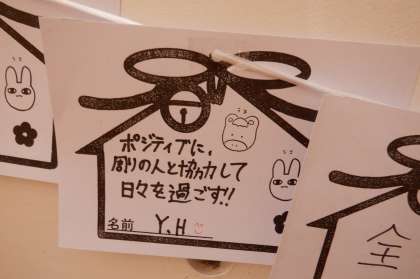 ポジティブに、
周りの人と協力して
日々を過ごす!!
名前 Y.H
全